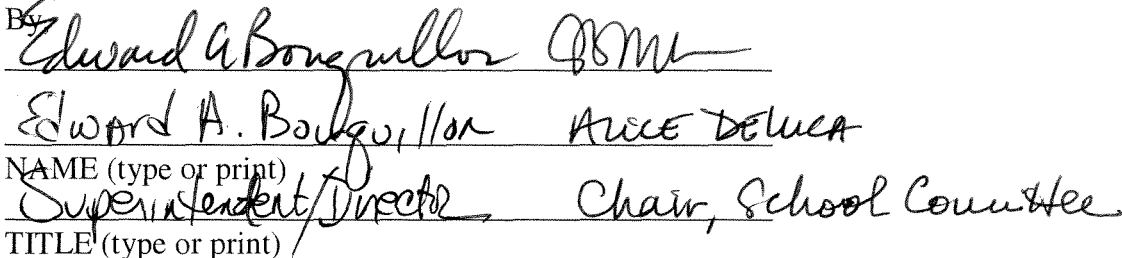 By
Edward A Bouquillon
Edward A. Bouquillon ALICE DELUCA
NAME (type or print)
Superintendent/Director Chair, School Committee
TITLE (type or print)